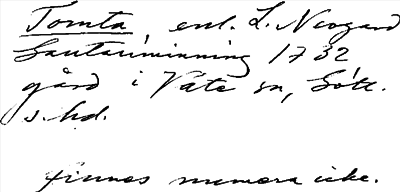 Tomta, enl. L. Neogard
Gautauminning 1732
gård i Väte sn, Gótl.
s. hd.
finnes numera icke.